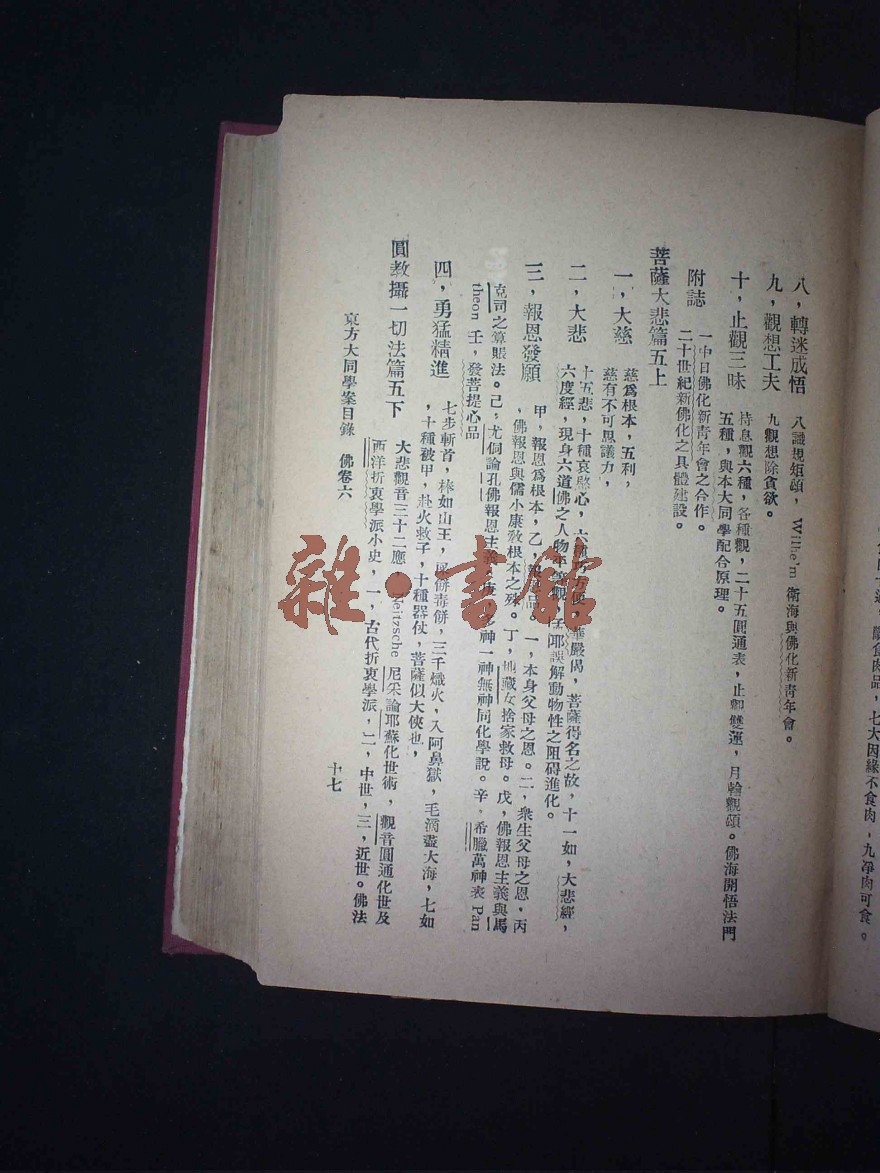 八，轉迷成悟　八識規矩頌，Wilhe'm 衛海與佛化新青年會。
九，觀想工夫　九觀想除貪欲。
十，止觀三昧　持息觀六種，各種觀，二十五圓通表，止卽雙運，月輪觀頌。佛海開悟法門
五種，與本大同學配合原理。
附誌　一中日佛化新青年會之合作。
二十世紀新佛化之具體建設。
菩薩大悲篇五上
一，大慈　慈爲根本，五利，
慈有不可思議力，
二，大悲　十五悲，十種哀愍心，六種巧方便，華嚴偈，菩薩得名之故，十一如，大悲經，
六度經，現身六道佛之人物平等觀，孟耶誤解動物性之阻碍進化。
三，報恩發願　甲，報恩爲根本，乙，報恩品。一，本身父母之恩。二，衆生父母之恩，丙
，佛報恩與儒小康敎根本之殊。丁，地藏女捨家救母。戊，佛報恩主義與馬
克司之算賬法。己，尤侗論孔佛報恩主義，庚，多神一神無神同化學說。辛，希臘萬神表 Pan
theon 壬，發菩提心品
四，勇猛精進　七步斬首，棒如山王，煎餅毒餅，三千熾火，入阿鼻獄，毛滴盡大海，七如
，十種被甲，赴火救子，十種器仗，菩薩似大俠也，
圓教攝一切法篇五下
大悲觀音三十二應　Neitzsche 尼采論耶蘇化世術，觀音圓通化世及
西洋折衷學派小史，一，古代折衷學派，二，中世，三，近世。佛法
東方大同學案目錄　佛卷六　十七
雜·書館
肉品，七大因緣不食肉，九淨肉可食。